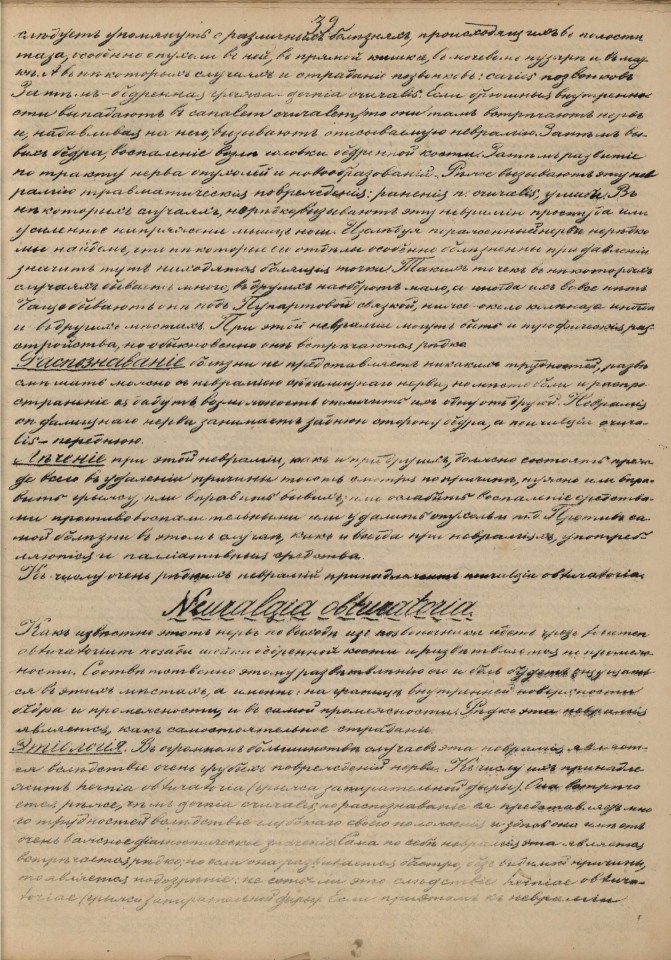 39
следуетъ упомянуть о различныхъ болѣзняхъ, происходящихъ въ полости
таза, особенно опухоли въ ней, въ прямой кишкѣ, въ мочевомъ пузырѣ и въ мат-
кѣ. А въ нѣкоторыхъ случаяхъ и страданіе позвонковъ: caries позвонковъ
Затѣмъ - бедренная грыжа - hernia cruralis. Если брюшныя внутренно-
сти выпадаютъ въ canalem cruralem, то они тамъ встрѣчаютъ нервъ
и, надавливая на него, вызываютъ описываемую невралгію. Затѣмъ вы-
вихъ бедра, воспаленіе возлѣ головки бедренной кости. Затѣмъ развитіе
по тракту нерва опухолей и новообразованій. Рѣже вызываютъ эту нев-
ралгію травматическія поврежденія: раненія n. cruralis, ушибы. Въ
нѣкоторыхъ случаяхъ, нерѣдко, вызываютъ эту невралгію простуда или
усиленное напряженіе мышцъ ноги. Изслѣдуя пораженный нервъ нерѣдко
мы найдемъ, что нѣкоторые его отдѣлы особенно болѣзненны при давленіи
значитъ тутъ находятся болящія точки. Такихъ точекъ въ нѣкоторыхъ
случаяхъ бываетъ много, въ другихъ наоборотъ мало, а иногда ихъ вовсе нѣтъ
Чаще бываютъ онѣ подъ Пупартовой связкой, ниже - около колѣна, а иногда
и въ другихъ мѣстахъ. При этой невралгіи могутъ быть и трофическія раз-
стройства, но обыкновенно онѣ встрѣчаются рѣдко.
Распознаваніе болѣзни не представляетъ никакихъ трудностей, развѣ
смѣшать можно съ невралгіею сѣдалищнаго нерва, но мѣсто боли и распро-
страненіе ея дадутъ возможность отличить ихъ одну отъ другой. Невралгія
сѣдалищнаго нерва занимаетъ заднюю сторону бедра, а neuralgia crura-
lis - переднюю.
Лѣченіе при этой невралгіи, какъ и при другихъ, должно состоять преж-
де всего въ удаленіи причины то есть смотря по причинѣ, нужно или впра-
вить грыжу, или вправить вывихъ, или ослабить воспаленіе средства-
ми противовоспалительными или удалить опухоль и т.д. Противъ са-
мой болѣзни въ этомъ случаѣ, какъ и всегда при невралгіяхъ, употреб-
ляются и палліативныя средства.
Къ числу очень рѣдкихъ невралгій принадлежитъ neuralgia obturatoria.
Neuralgia obturatoria.
Какъ извѣстно этотъ нервъ по выходѣ изъ позвоночника идетъ чрезъ foramen
obturatorium позади шейки бедренной кости и развѣтвляется въ промеж-
ности. Соотвѣтственно этому развѣтвленію его и боль будетъ ощущать-
ся въ этихъ мѣстахъ, а именно: на границѣ внутренней поверхности
бедра и промежности, и въ самой промежности. Рѣдко эта невралгія
является, какъ самостоятельное страданіе.
Этіологія. Въ огромномъ большинствѣ случаевъ эта невралгія являет-
ся вслѣдствіе очень грубыхъ поврежденій нерва. Къ числу ихъ принадле-
житъ hernia obturatoria (грыжа запирательной дыры). Она встрѣча-
ется рѣже, чѣмъ hernia cruralis, но распознаваніе ея представляетъ мно-
го трудностей вслѣдствіе глубокаго своего положенія и здѣсь она имѣетъ
очень важное діагностическое значеніе. Сама по себѣ невралгія эта является
встрѣчается рѣдко, но если она развивается быстро, безъ видимой причины,
то является подозрѣніе: не есть ли это слѣдствіе herniae obtura-
toriae (грыжи запирательной дыры). Если при этомъ къ невралгіи